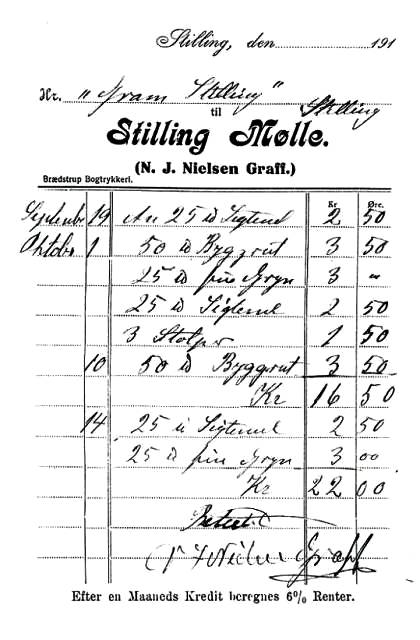 Stilling, den 191
Hr. „Gram Stilling” Stilling
til
Stilling Mølle.
(N. J. Nielsen Graff.)
Brædstrup Bogtrykkeri.
Kr Øre.
September 19 An 25 ℔ Sigtemel 2 50
Oktober 1 50 ℔ Byggrut 3 50
25 ℔ fin Gryn 3 "
25 ℔ Sigtemel 2 50
3 Stolper 1 50
10 50 ℔ Byggrut 3 50
Kr 16 50
14 25 ℔ Sigtemel 2 50
25 ℔ fin Gryn 3 00
Kr 22 00
Betalt
N J Nielsen Graff
Efter en Maaneds Kredit beregnes 6% Renter.